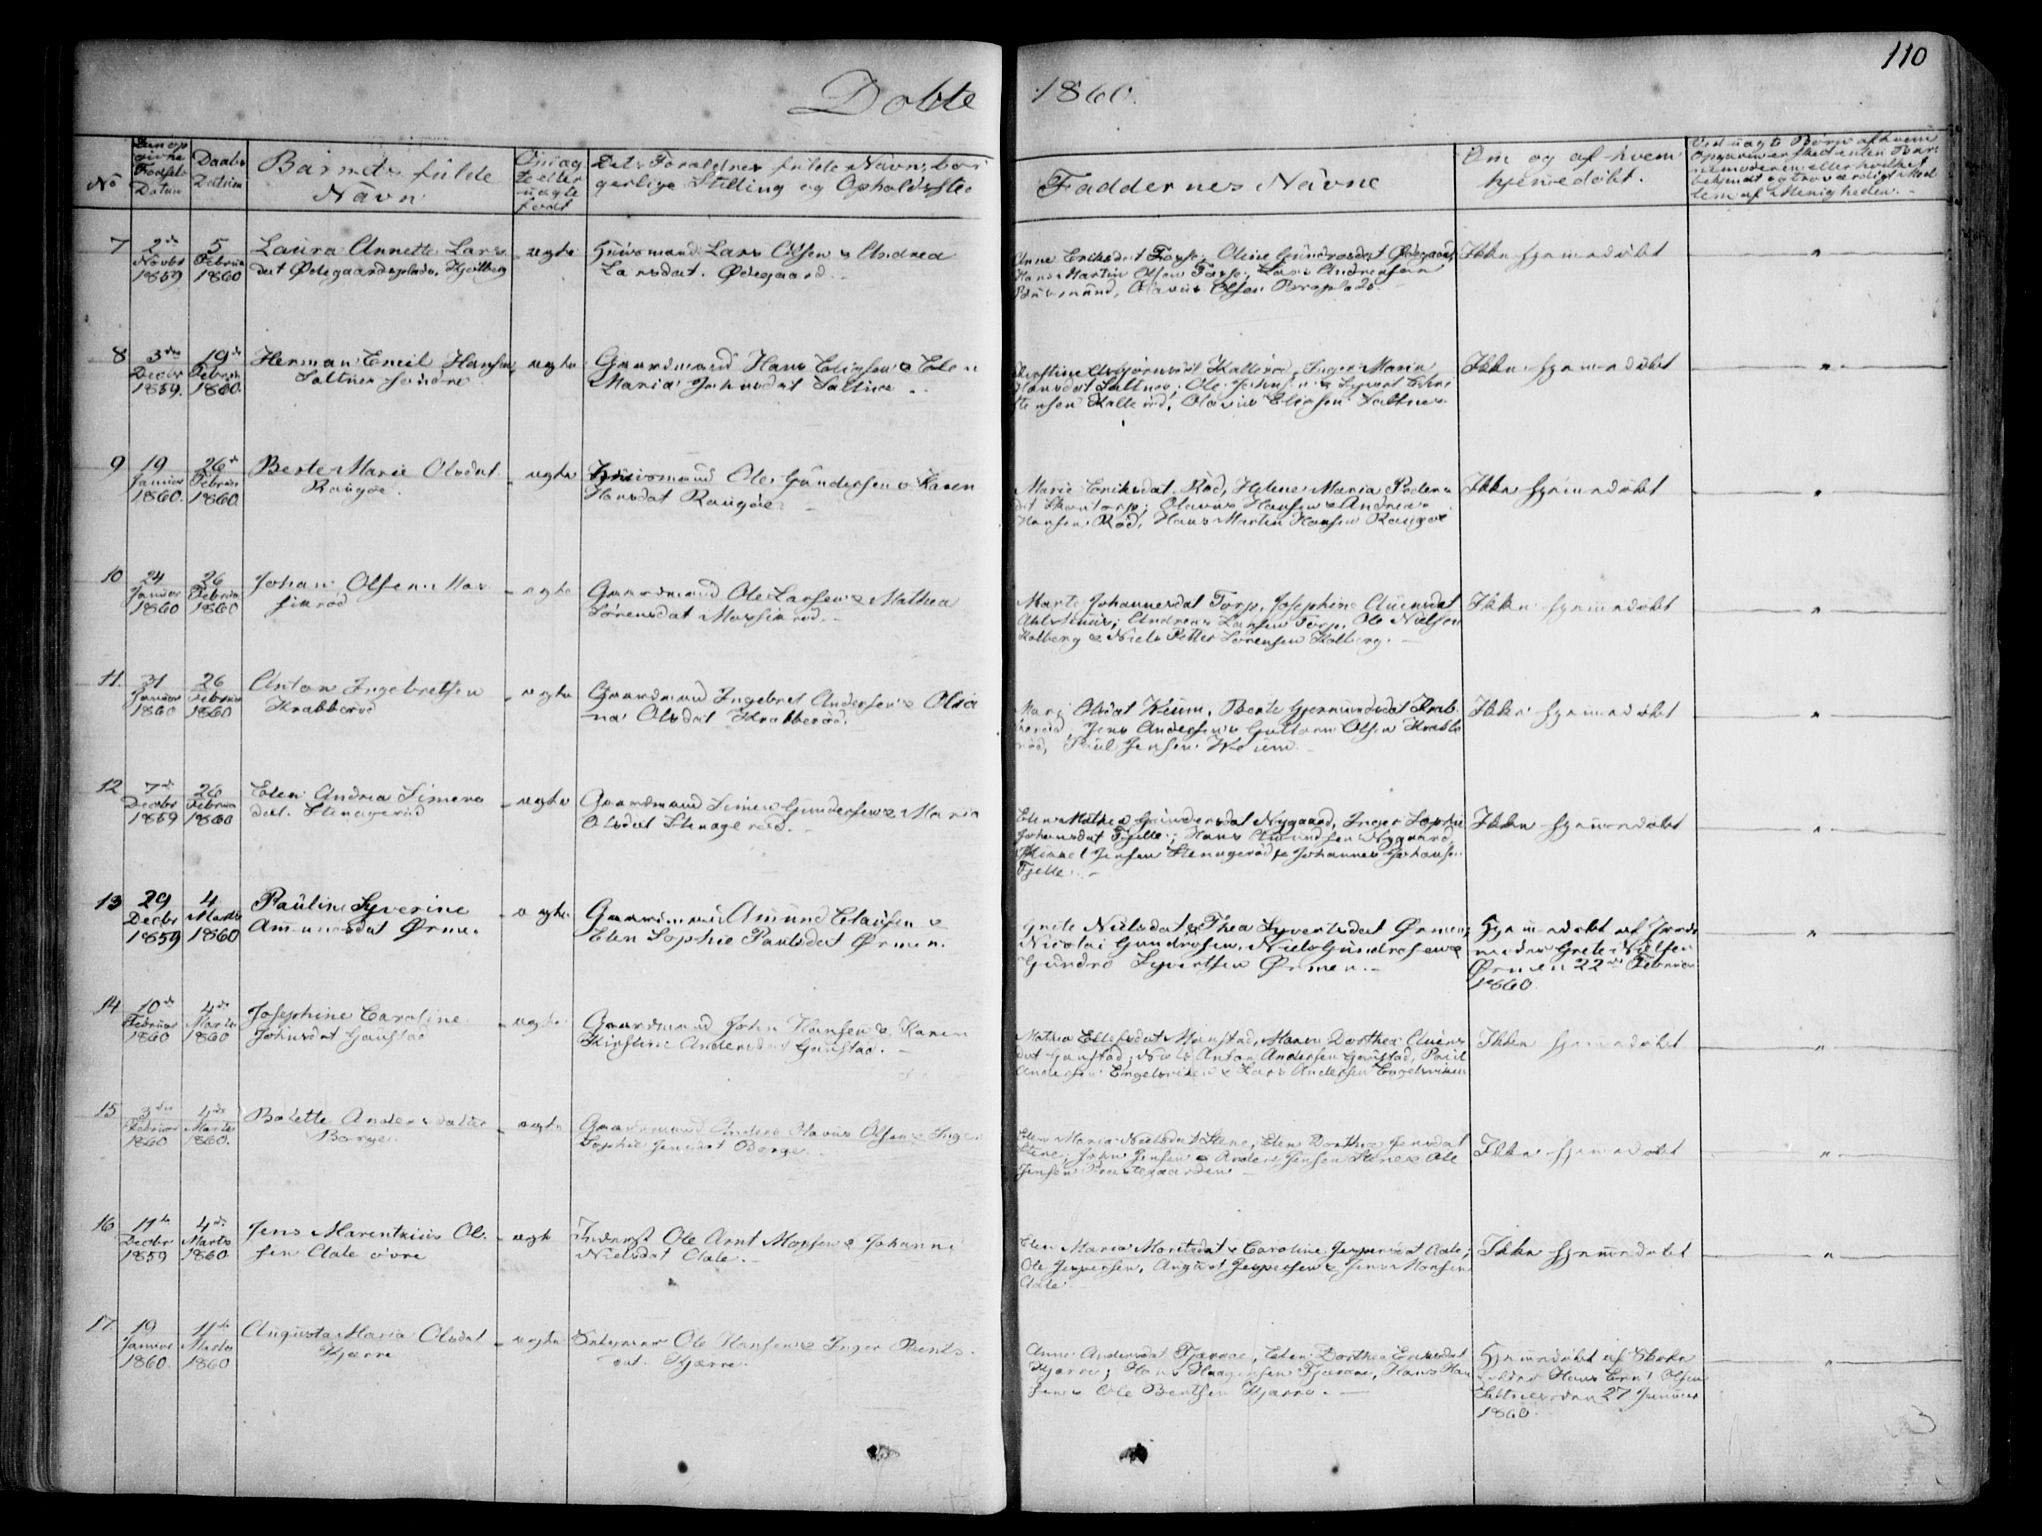 110
Døbte 1860.
No
Daabs Datum
Barnets fulde Navn
Det's Forældres fulde Navn, bor-
gerlige Stilling og Opholdssted
Faddernes Navne
Om og af hvem
hjemedøbt.
7 2de Novbr 1859 5 Februar 1860
Laura Annette Lars-
dat Ødegaardsplads, Kjølberg
ægte
Huusmand Lars Olsen & Andrea
Larsdat. Ødegaard.
Anne Eriksdat Torp, Oline Gundrosdat Ødegaard,
Hans Martin Olsen Torp, Lars Andreasen
Olavus Olsen Broplads.
Ikke hjemmedøbt
8 3die Decbr 1859. 19de Februar 1860.
Herman Emil Hansen
Saltnes søndre
ægte
Gaardmand Hans Eliasen & Elen
Maria Johnsdat Saltnes.
Kirstine Asbjørnsdat Kallerød, Inger Maria
Hansdat Saltnes; Ole Johnsen & Syvert Chri-
stensen Kallerød, Olavus Eliasen Saltnes.
Ikke hjemmedøbt
9 19 Januar 1860. 26de Februar 1860.
Berte Marie Olsdat.
Raugøe.
ægte
Huusmand Ole Gundersen & Karen
Hansdat Raugøe.
Marie Eriksdat. Rød, Helene Maria Peders-
dat Skovtorp; Olavus Hansen & Andreas
Hansen Rød, Hans Martin Hansen Raugøe
Ikke hjemmedøbt
10 24 Januar 1860 26 Februar 1860
Johan Olsen Mos-
sikrød
ægte
Gaardmand Ole Larsen & Mathea
Sørensdat Mossikrød.
Marte Johannesdat Torp, Josephine Auensdat
Andreas Larsen Torp, Ole Nielsen
Kolberg & Niels Petter Sørensen Kolberg.
Ikke hjemmedøbt
11. 31 Januar 1860 26 Februar 1860
Anton Ingebretsen
Krabberød
ægte
Gaardmand Ingebret Andersen & Olia-
na Olsdat Krabberød.
Mari Olsdat Weum, Berte Gjermundsdat Krab-
berød, Jens Andersen & Guttorm Olsen Krabbe-
rød, Paul Jensen Weum.
Ikke hjemmedøbt
12 7de Decbr 1859 26 Februar 1860
Elen Andrea Simens-
dat. Stenagerød
ægte
Gaardmand Simen Gundersen & Maria
Olsdat Stenagerød.
Elen Mathea Gundersdat Nygaard, Inger Sophie
Johansdat Fjelle; Hans Amundsen Nygaard,
Mikkel Jensen Stenagerød & Johannes Johansen
Fjelle.
Ikke hjemmedøbt
13 29 Decbr 1859 4 Marts 1860
Pauline Syverine
Amundsdat Ørmen.
ægte
Gaardmand Amund Clausen &
Elen Sophie Paulsdat Ørmen.
Grete Nielsdat & Thea Syvertsdat Ørmen;
Nicolai Gundrosen, Niels Gundrosen &
Gundro Syvertsen Ørmen.
Hjemmedøbt af Jorde-
moder Grete Nielsen
Ørmen 22de Februar
1860.
14 10de Februar 1860 4de Marts 1860
Josephine Caroline
Johnsdat Gaustad
ægte
Gaardmand John Hansen & Karen
Kirstine Andersdat Gaustad.
Mathea Ellefsdat Manstad, Maren Dorthea Auens-
dat Gaustad; Niels Anton Andersen Gaustad, Paul
Andersen Engelsviken & Lars Andersen Engelsviken
Ikke hjemmedøbt
15 3die Februar 1860 4de Marts 1860.
Bolette Andersdatter
Borge.
ægte
Gaardmand Anders Olavus Olsen & Inger
Sophie Jensdat Borge.
Elen Maria Nielsdat Stene, Elen Dorthea Jensdat
Stene; John Jensen & Anders Jensen Stene & Ole
Jensen Prestegaarden
Ikke hjemmedøbt
16 11te Decbr 1859 4de Marts 1860
Jens Marentzius Ol-
sen Aale øvre
ægte
Inderst Ole Arnt Monsen & Johanne
Nielsdat Aale.
Elen Maria Monsdat & Caroline Jespersdat Aale;
Ole Jespersen, August Jespersen & Jens Monsen
Aale.
Ikke hjemmedøbt
17. 19 Januar 1860. 11te Marts 1860
Augusta Maria Olsdat
Kjærre
ægte
Ole Hansen & Inger Bents-
dat. Kjærre.
Anne Andersdat Tjærøe, Elen Dorthea Eriksdat
Kjærre; Hans Haagensen Tjærøe, Hans Han-
sen & Ole Bentsen Kjærre.
Hjemmedøbt af Skole-
holder Hans Ernst Olsen
Saltnes den 27 Januar
1860.